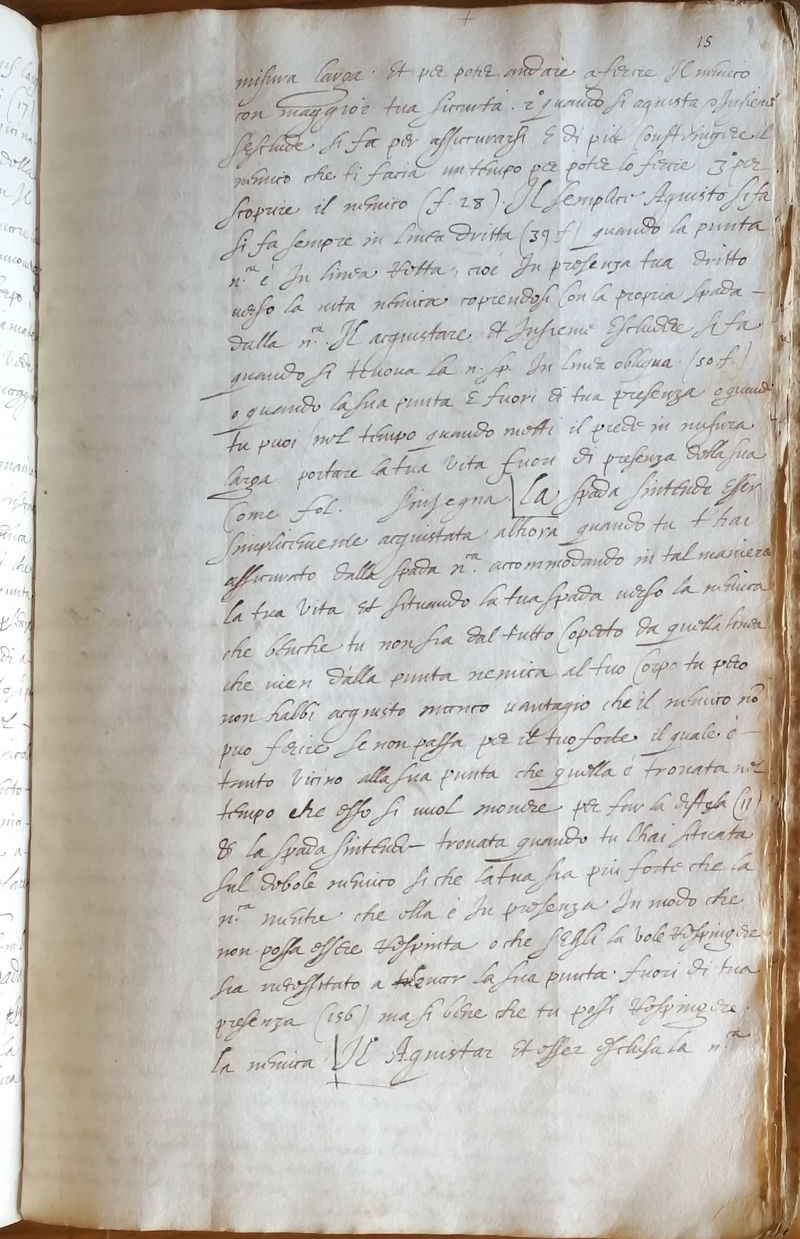 15
misura larga. Et per poter andare a ferire Il nemico
con maggior tua sicurtà. 2° quando si aquista et Insieme
s'esclude si fa per assicurarsi E di più Constringere il
nemico che ti facia un tempo per poter lo ferire 3° per
scoprire il nemico (f. 28). Il semplice Aquisto si fa
si fa sempre in linea dritta (39 f) quando la punta
n.ca è In linea Retta, cioè In presenza tua dritto
verso la vita nemica coprendosi Con la propria spada –
dalla n.ca. Il acquistare et Insieme Escludere si fa
quando si truova la n. sp. In linea obliqua. (50 f.)
o quando la sua punta E fuori di tua presenza o quando
tu puoi nel tempo quando metti il piede in misura
larga portare la tua vita fuori di presenza della sua
Come fol. s'insegna. La spada s'intende esser
simplicemente acquistata allhora quando tu t'hai
assicurato dalla spada n.ca accommodando in tal maniera
la tua vita et situando la tua spada verso la nemica
che benche tu non sia dal tutto Coperto da quella linea
che vien dalla punta nemica al tuo Corpo tu pero
non habbi acquisto manco vantagio che il nemico nō
puo ferire se non passa per il tuo forte il quale è –
tanto vicino alla sua punta che quella è trovata nel
tempo che esso si vuol movere per far la (11)
& la spada s'intende trovata quando tu l'hai situata
sul debole nemico si che la tua sia piu forte che la
n.ca mentre che ella è In presenza In modo che
non possa essere Respinta o che s'Egli la vole Respingere
sia necessitato a tener la sua punta fuori di tua
presenza (156) ma si bene che tu possi Respingere
la nemica. Il Aquistar et esser esclusa la n.ca